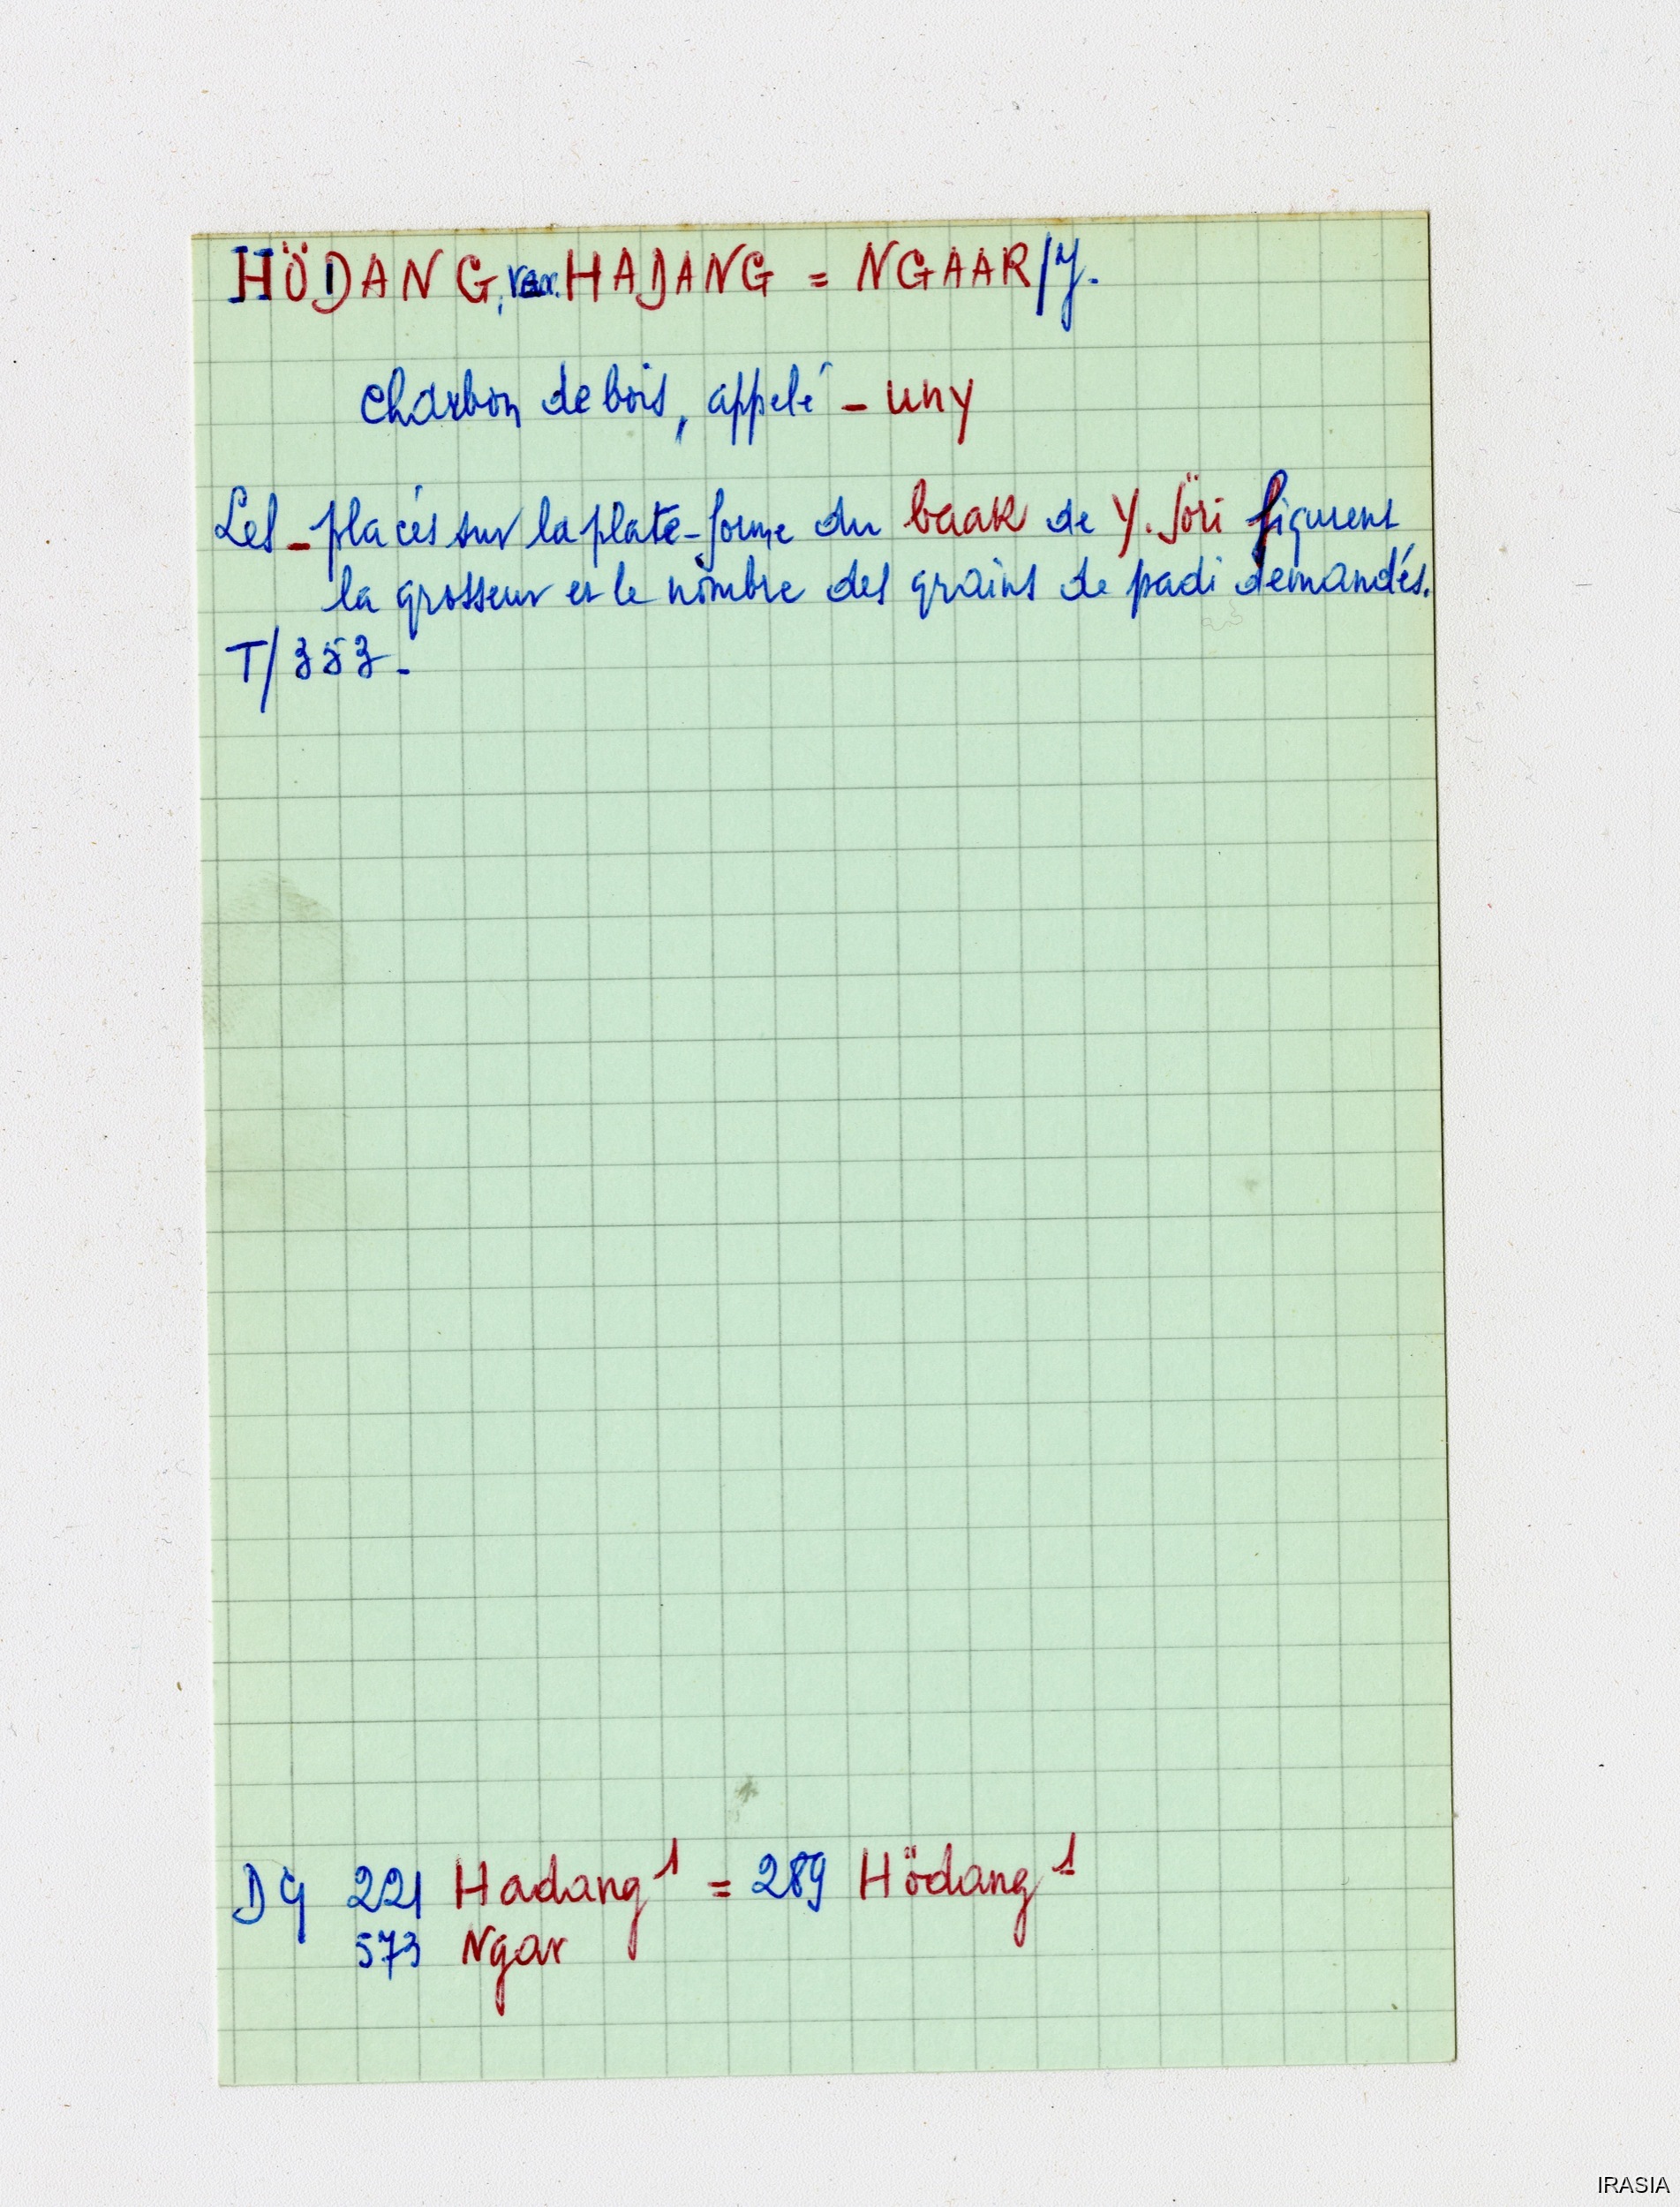 HÖDANG, var. HADANG = NGAAR/Y.
charbon de bois, appelé - uny
Les - placés sur la plate-forme du baak de Y. Jöri figurent
la grosseur et le nombre des grains de padi demandés.
T/353-
D9 221 Hadang¹ = 289 Hödang¹
573 Ngar
IRASIA